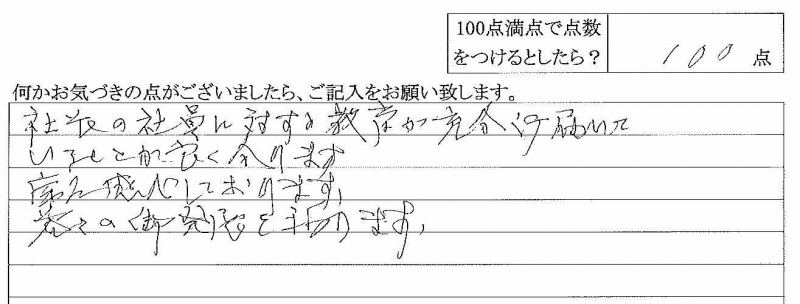 100点満点で点数
をつけるとしたら？
100 点
何かお気づきの点がございましたら、ご記入をお願い致します。
社長の社員に対する教育が充分行届いて
いることが良く分ります
感心しております。
益々の御発展を祈ります。